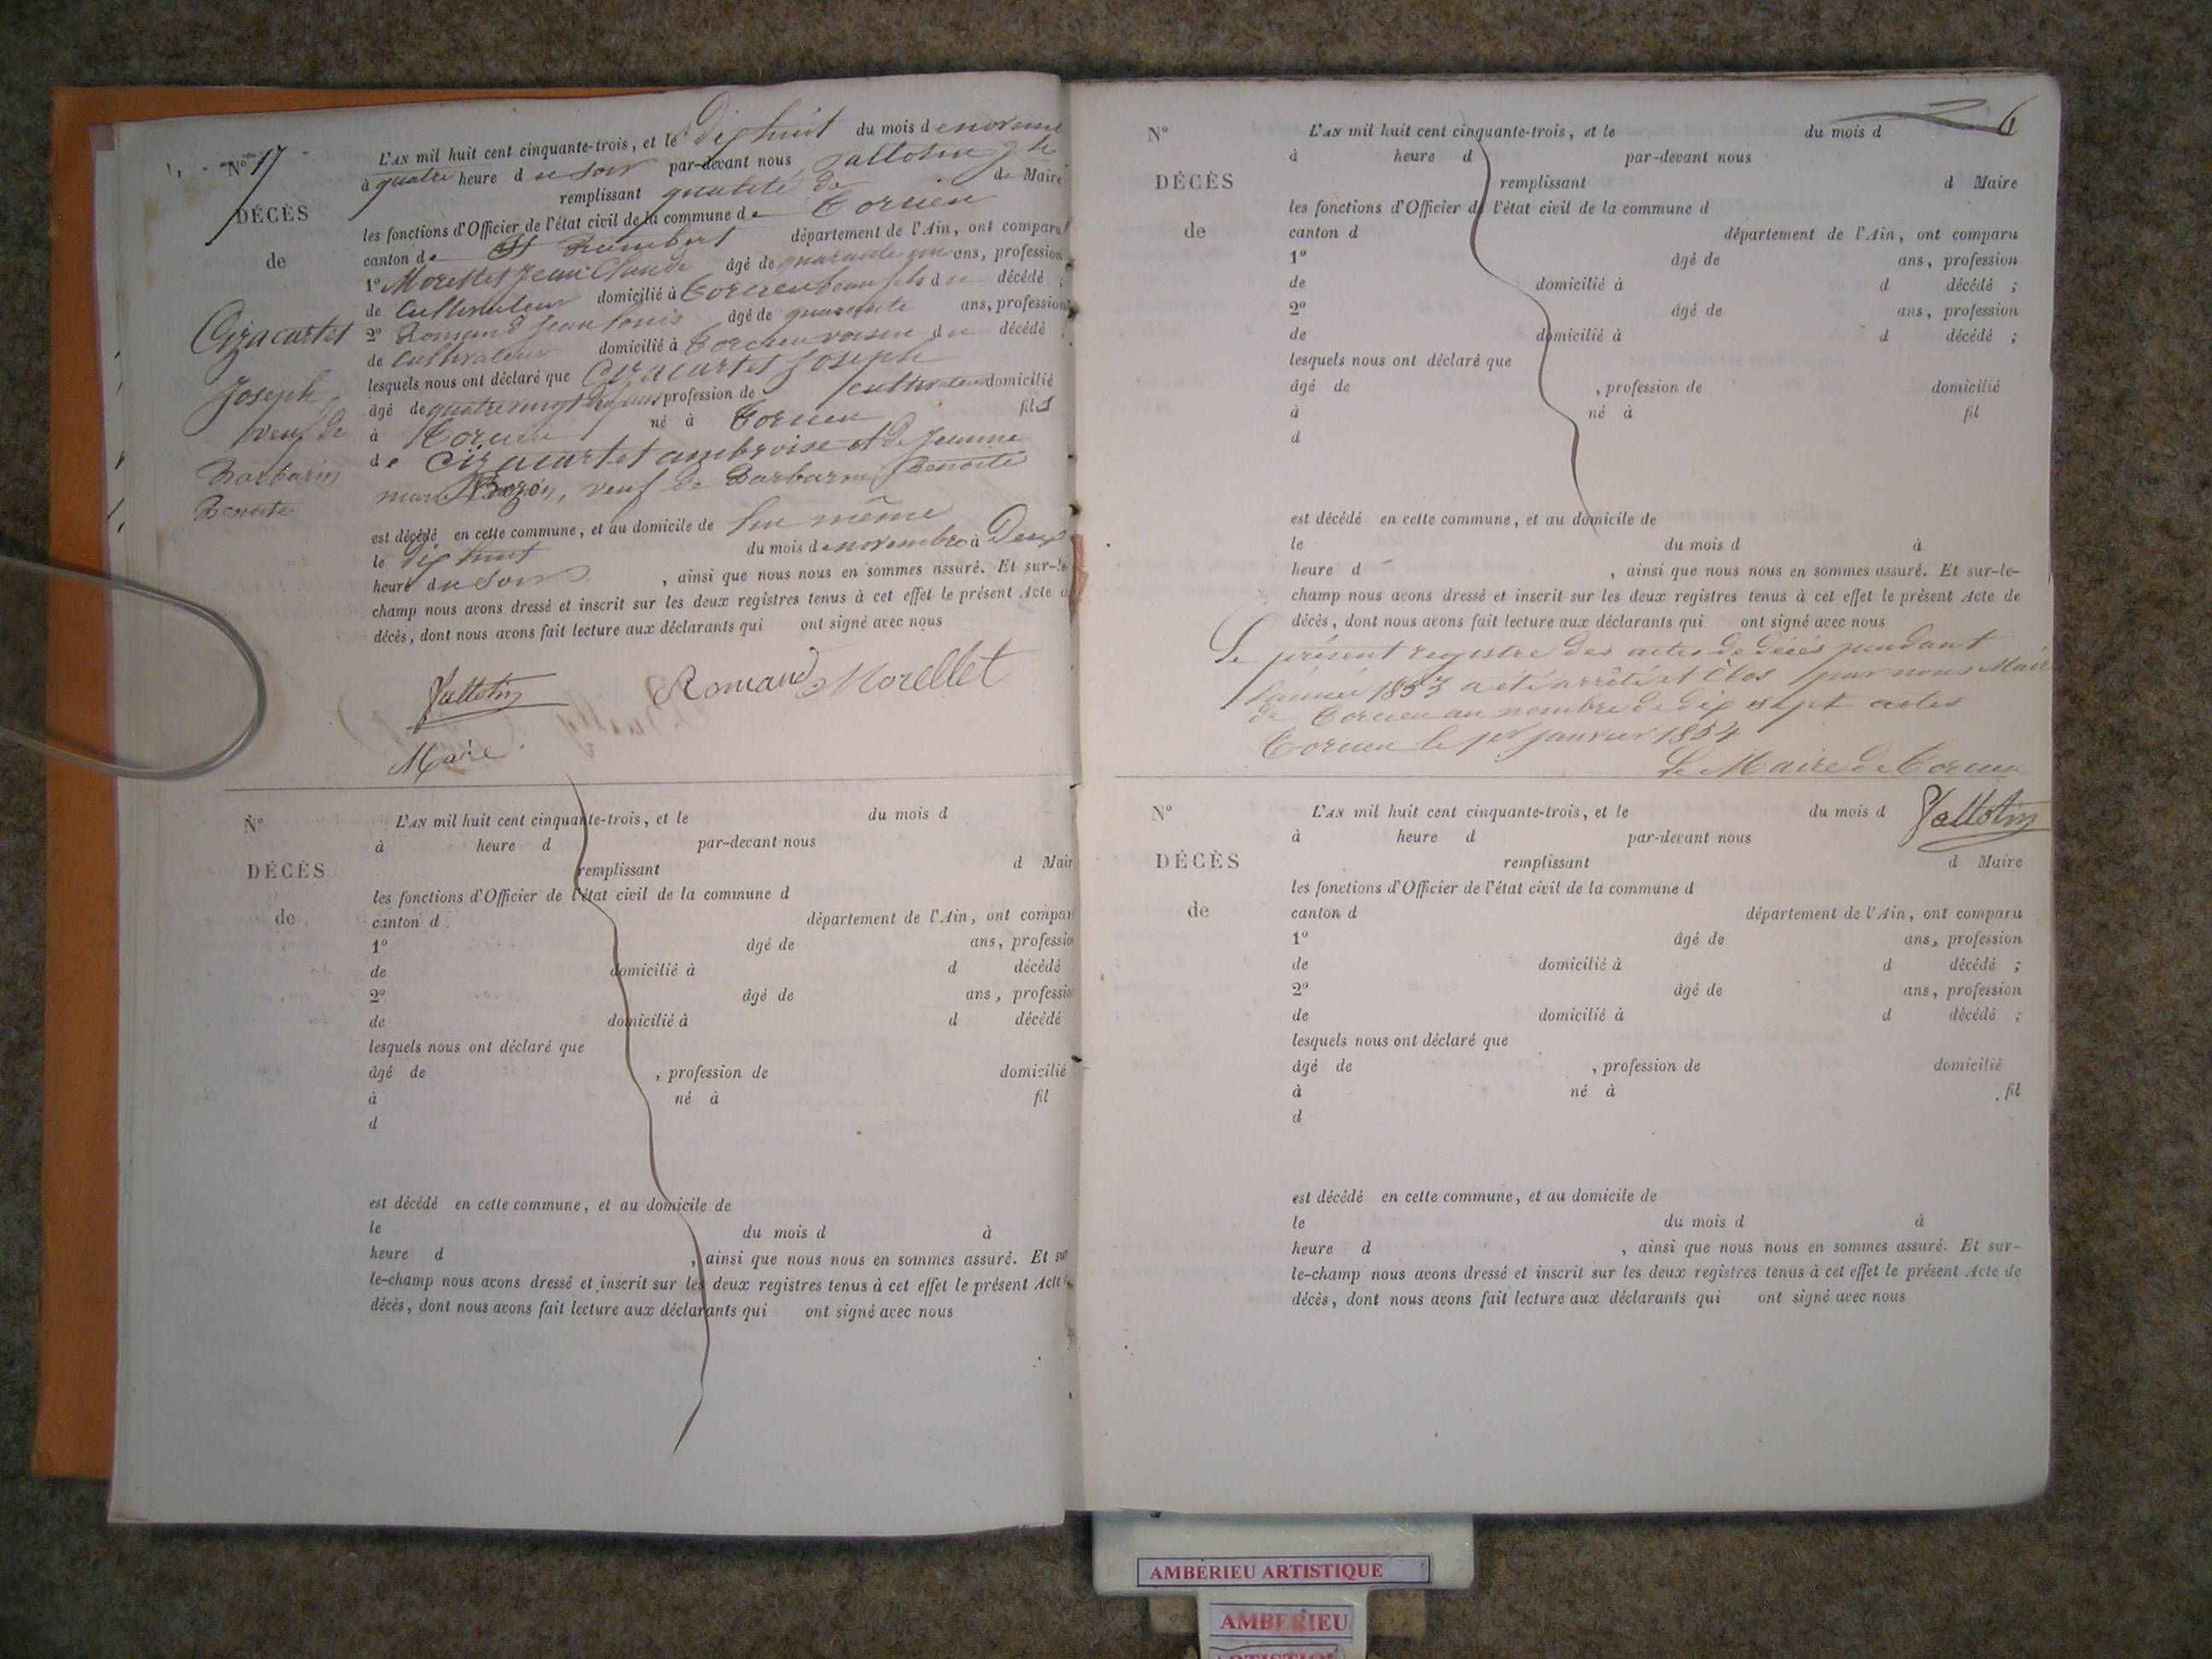 N° 17
DÉCÈS
de
Cizacartet
Joseph
veuf de
Barbarin
Benoite
L'AN mil huit cent cinquante-trois, et le dix huit du mois de novemb
à quatre heure du soir par-devant nous Vallotin
remplissant qualité de de Maire
les fonctions d'Officier de l'état civil de la commune de Torcieu
canton de St Rambert département de l'Ain, ont comparu
1° Morellet Jean Claude âgé de quarante un ans, profession
de cultivateur domicilié à Torcieu beau fils du décédé ;
2° Romand Jean Louis âgé de quarante ans, profession
de cultivateur domicilié à Torcieu voisin du décédé ;
lesquels nous ont déclaré que Cizacartet Joseph
âgé de quatre vingt ans profession de cultivateur domicilié
à Torcieu né à Torcieu fils
de Cizacartet ambroise et de Jeanne
marie Bozon, veuf de Barbarin Benoite
est décédé en cette commune, et au domicile de lui même
le dix huit du mois de novembre à Deux
heure du soir , ainsi que nous nous en sommes assuré. Et sur-le
champ nous avons dressé et inscrit sur les deux registres tenus à cet effet le présent Acte d
décès, dont nous avons fait lecture aux déclarants qui ont signé avec nous
Vallotin Romand Morellet
Maire
N°
DÉCÈS
de
L'AN mil huit cent cinquante-trois, et le du mois d
à heure d par-devant nous
remplissant d Mair
les fonctions d'Officier de l'état civil de la commune d
canton d département de l'Ain, ont compar
1° âgé de ans, professio
de domicilié à d décédé
2° âgé de ans, professio
de domicilié à d décédé
lesquels nous ont déclaré que
âgé de , profession de domicilié
à né à fil
d
est décédé en cette commune, et au domicile de
le du mois d à
heure d , ainsi que nous nous en sommes assuré. Et sur
le-champ nous avons dressé et inscrit sur les deux registres tenus à cet effet le présent Acte
décès, dont nous avons fait lecture aux déclarants qui ont signé avec nous
6
N°
DÉCÈS
de
L'AN mil huit cent cinquante-trois, et le du mois d
à heure d par-devant nous
remplissant d Maire
les fonctions d'Officier de l'état civil de la commune d
canton d département de l'Ain, ont comparu
1° âgé de ans, profession
de domicilié à d décédé ;
2° âgé de ans, profession
de domicilié à d décédé ;
lesquels nous ont déclaré que
âgé de , profession de domicilié
à né à fil
d
est décédé en cette commune, et au domicile de
le du mois d à
heure d , ainsi que nous nous en sommes assuré. Et sur-le-
champ nous avons dressé et inscrit sur les deux registres tenus à cet effet le présent Acte de
décès, dont nous avons fait lecture aux déclarants qui ont signé avec nous
Le présent registre des actes de décés pendant
l'année 1853 a été arrêté et Clos par nous Maire
de Torcieu au nombre de dix sept actes
Torcieu le 1er janvier 1854
Le Maire de Torcieu
Vallotin
N°
DÉCÈS
de
L'AN mil huit cent cinquante-trois, et le du mois d
à heure d par-devant nous
remplissant d Maire
les fonctions d'Officier de l'état civil de la commune d
canton d département de l'Ain, ont comparu
1° âgé de ans, profession
de domicilié à d décédé ;
2° âgé de ans, profession
de domicilié à d décédé ;
lesquels nous ont déclaré que
âgé de , profession de domicilié
à né à fil
d
est décédé en cette commune, et au domicile de
le du mois d à
heure d , ainsi que nous nous en sommes assuré. Et sur-
le-champ nous avons dressé et inscrit sur les deux registres tenus à cet effet le présent Acte de
décès, dont nous avons fait lecture aux déclarants qui ont signé avec nous
AMBERIEU ARTISTIQUE
AMBERIEU
ARTISTIQU